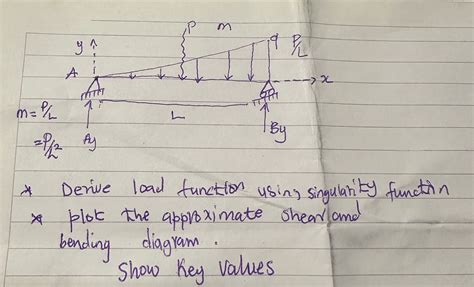 P m
y q P/L
A x
m = P/L L
= P/L² Ay By
* Derive load function using singularity functin
* plot the approximate shear and
bending diagram.
Show Key Values